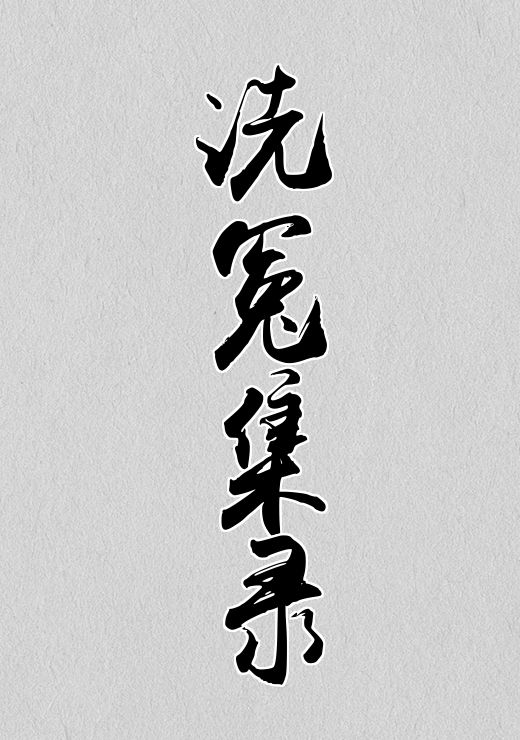 洗冤集录